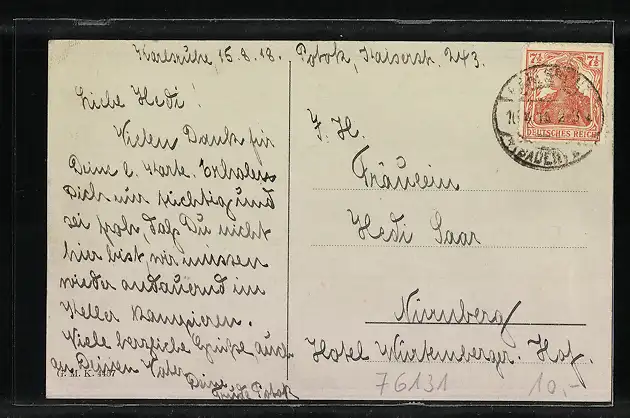 Karlsruhe 15.8.18. Pobok, Kaiserstr. 243.
Liebe Hedi!
Vielen Dank für
Deine l. Karte. Erholen
Dich nur tüchtig und
sei froh, daß Du nicht
hier bist, wir müssen
wieder andauernd im
Keller kampieren.
Viele herzliche Grüße, auch
an Deinen Vater
Deine
Trude Pobok
G. M. K. 4497
7½ 7½
DEUTSCHES REICH
(BADEN)
Fräulein
Hedi Saar
Nürnberg
Hotel Würtemberger. Hof.
76131 10,-